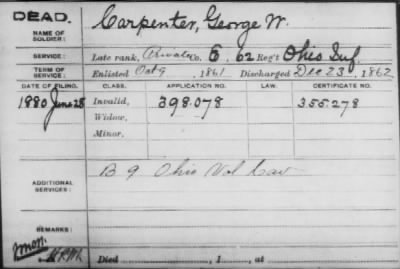 DEAD.
NAME OF SOLDIER: Carpenter, George W.
SERVICE: Late rank, Private Co. G, 62 Reg't Ohio Inf.
TERM OF SERVICE: Enlisted Oct 9, 1861 Discharged Dec 23, 1862
DATE OF FILING. CLASS. APPLICATION NO. LAW. CERTIFICATE NO.
1880 June 28 Invalid, 398.078 355.278
Widow,
Minor,
ADDITIONAL SERVICES: B 9 Ohio Vol Cav
REMARKS:
Died, 1, at